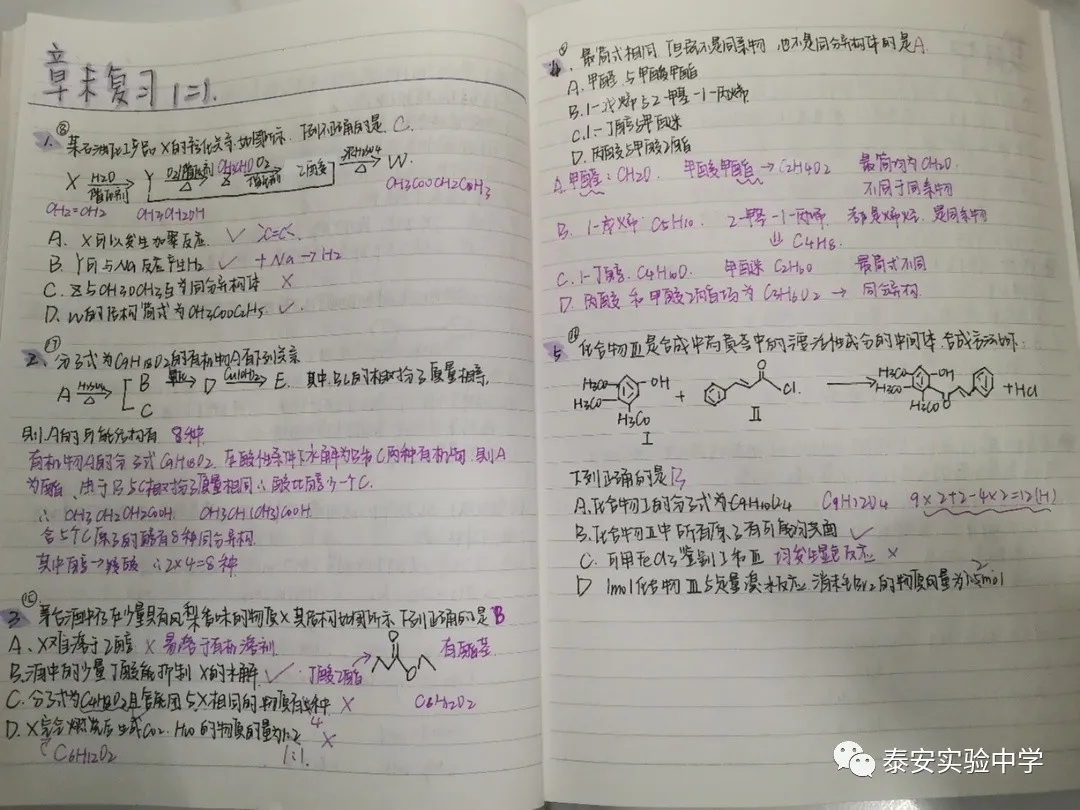 章末复习 1=1.
⑧
1. 某石油化工产品X的转化关系如图所示,下列不正确的是 C.
X H2O 催化剂 Y O2/催化剂 △ Z CH3CHO O2 催化剂 乙酸 浓H2SO4 △ W.
CH2=CH2 CH3CH2OH
A. X可以发生加聚反应. ✓ >C=C<
B. Y可与Na反应产生H2 ✓ +Na→H2
C. Z与CH3OCH3互为同分异构体 ×
D. W的结构简式为CH3COOC2H5. ✓.
⑰
2. 分子式为C9H18O2的有机物A有下列关系
A H2SO4 △ B C D Cu(OH)2 △ E. 其中B、C的相对分子质量相等,
则A的可能结构有 8种
有机物A的分子式C9H18O2. 在酸性条件下水解为B和C两种有机物,则A
为酯,由于B与C相对分子质量相同∴酸比醇少一个C.
∴ CH3CH2CH2COOH. CH3CH(CH3)COOH.
含5个C原子的醇有8种同分异构.
其中醇→羧酸 ∴2×4=8种
⑮
3. 茅台酒中存在少量具有凤梨香味的物质X其结构如图所示,下列正确的是B
A. X难溶于乙醇 × 易溶于有机溶剂. 有酯基
B. 酒中的少量丁酸能抑制X的水解 ✓ 丁酸乙酯
C. 分子式为C4H8O2且官能团与X相同的物质有5种 × C6H12O2
4
D. X完全燃烧后生成CO2. H2O的物质的量为1:2 ×
C6H12O2 1:1.
⑨
4. 最简式相同,但既不是同系物,也不是同分异构体的是A.
A. 甲醛与甲酸甲酯
B. 1-戊烯与2-甲基-1-丙烯
C. 1-丁醇与甲醚
D. 丙酸与甲酸乙酯
A. 甲醛: CH2O. 甲酸甲酯→C2H4O2 最简均为CH2O.
不同于同系物
B. 1-戊烯 C5H10. 2-甲基-1-丙烯 都是烯烃. 是同系物
⇓ C4H8.
C. 1-丁醇. C4H10O. 甲醚 C2H6O 最简式不同
D. 丙酸和甲酸乙酯均为C3H6O2 → 同分异构.
5. 化合物Ⅲ是合成中药黄芩中的活性成分的中间体,合成方法如下:
H3CO H3CO H3CO OH Ⅰ + O Cl. Ⅱ → H3CO H3CO H3CO OH O +HCl
下列正确的是B
A. 化合物Ⅰ的分子式为C9H10O4 C9H12O4 9×2+2-4×2=12(H)
B. 化合物Ⅱ中所有原子有可能均共面 ✓
C. 可用FeCl3鉴别Ⅰ和Ⅲ 均发生显色反应 ×
D 1mol化合物Ⅲ与足量溴水反应 消耗Br2的物质的量为1.5mol
2
泰安实验中学